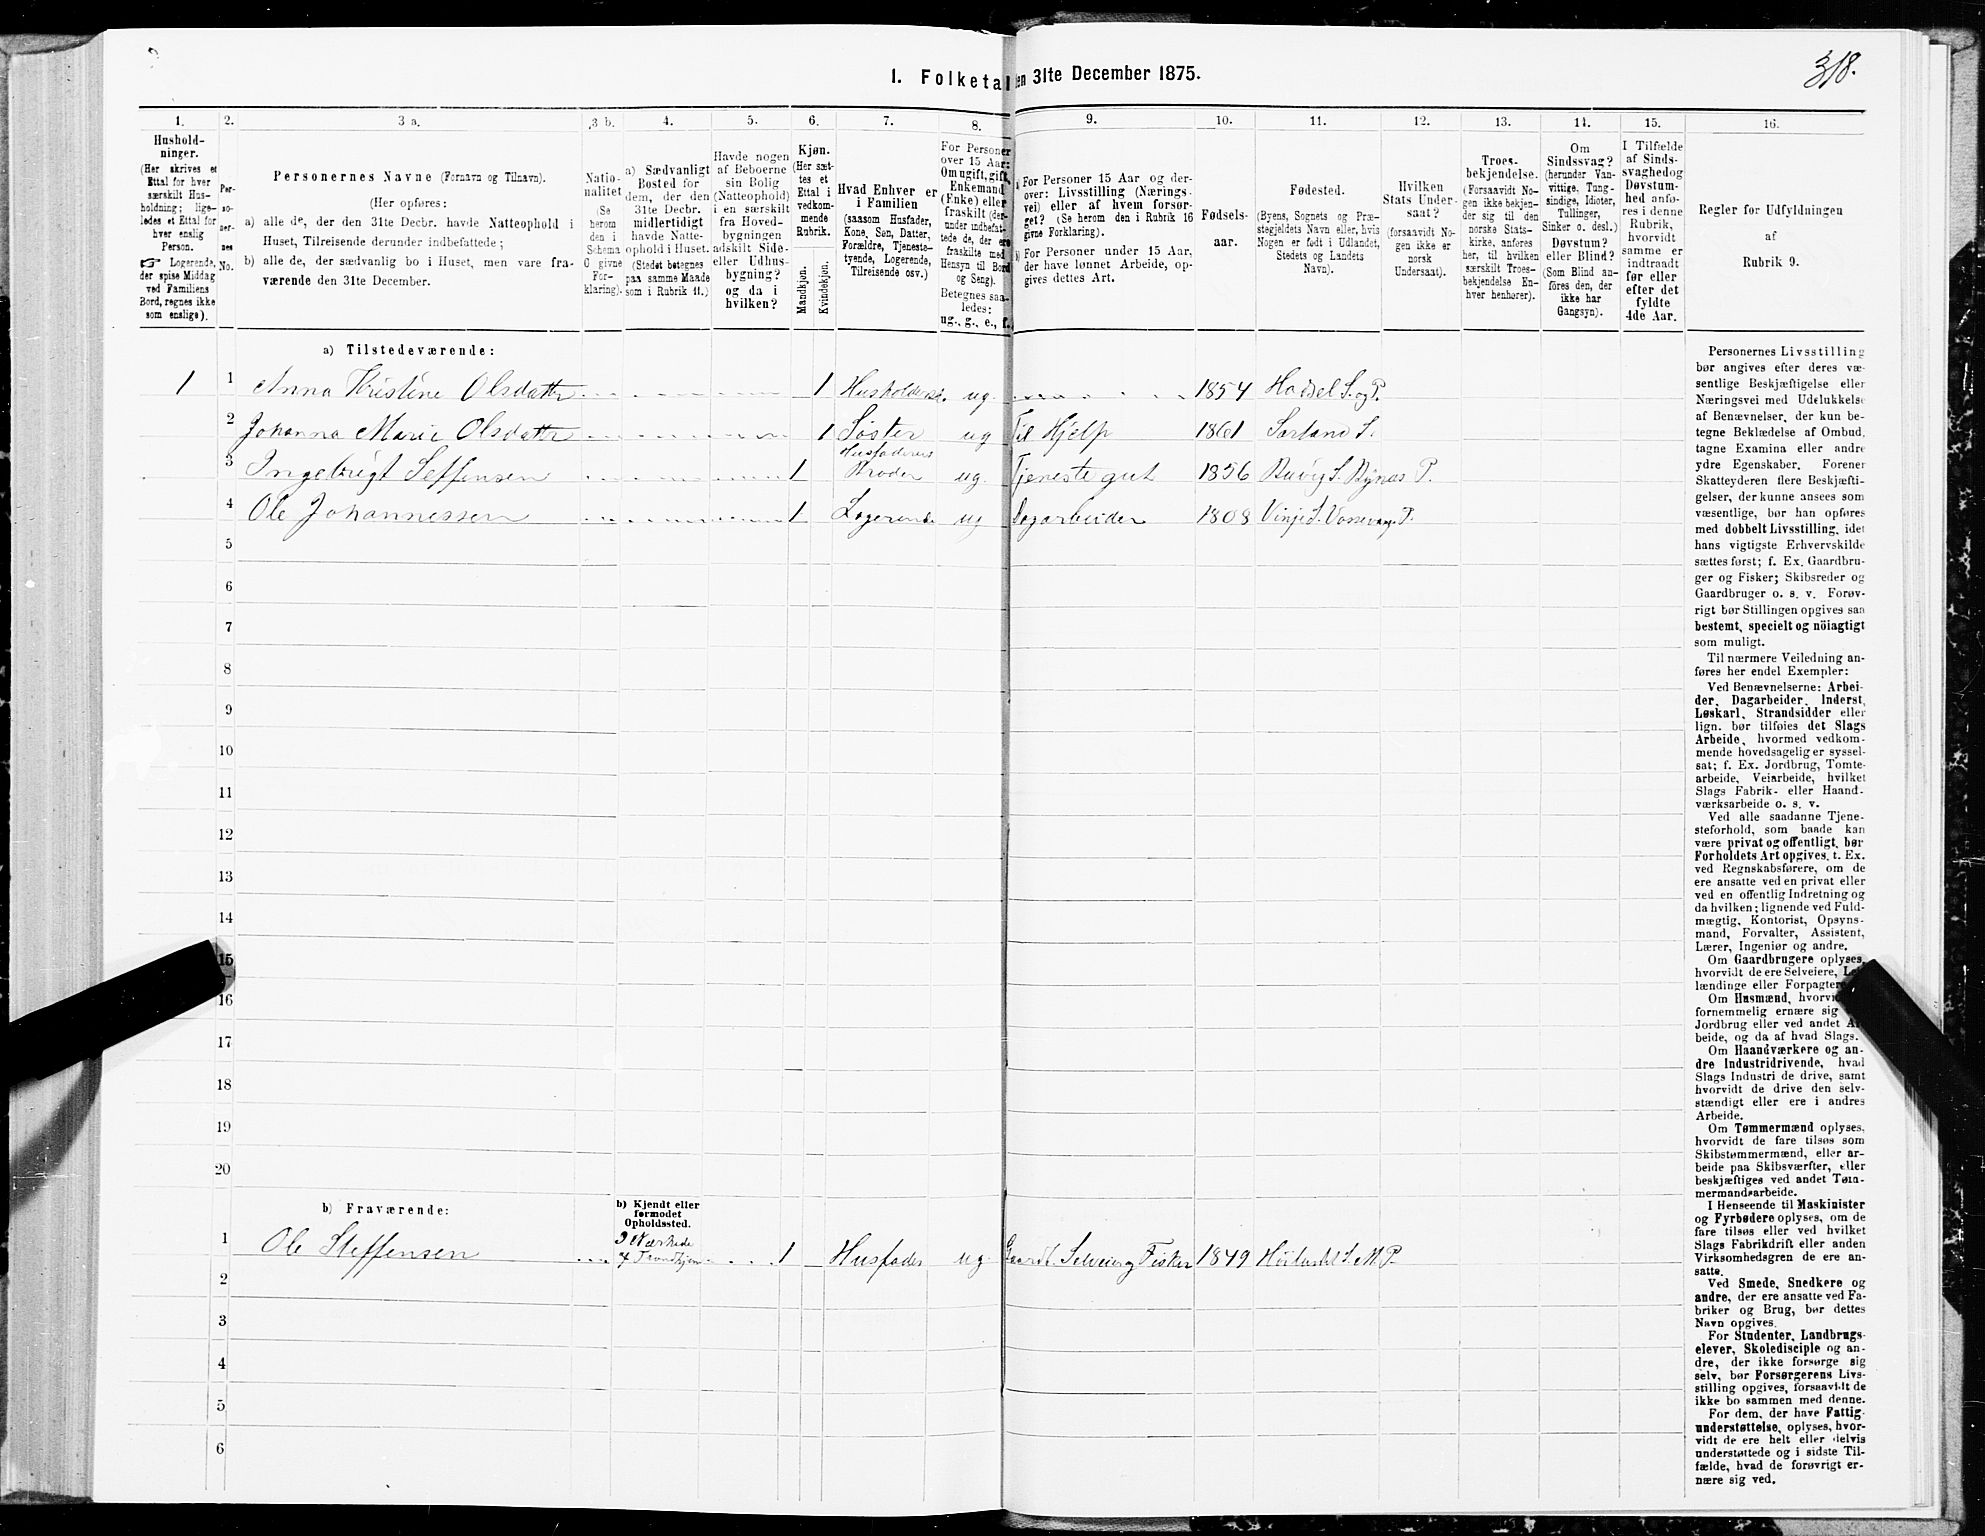 318.
1. Folketal den 31te December 1875.
1. 2. 3 a. 3 b. 4. 5. 6. 7. 8. 9. 10. 11. 12. 13. 14. 15. 16.
Hushold-
ninger.
(Her skrives et
Ettal for hver
særskilt Hus-
holdning; lige-
ledes et Ettal for
hver enslig
Person.
☞ Logerende,
der spise Middag
ved Familiens
Bord, regnes ikke
som enslige).
Per-
so-
ner-
nes
No.
Personernes Navne (Fornavn og Tilnavn).
(Her opføres:
a) alle de, der den 31te Decbr. havde Natteophold i
Huset, Tilreisende derunder indbefattede;
b) alle de, der sædvanlig bo i Huset, men vare fra-
værende den 31te December.
Natio-
nalitet
(Se
herom
den i
Schema
O givne
For-
klaring).
a) Sædvanligt
Bosted for
dem, der den
31te Decbr.
midlertidigt
havde Natte-
ophold i Huset.
(Stedet betegnes
paa samme Maade
som i Rubrik 11.)
Havde nogen
af Beboerne
sin Bolig
(Natteophold)
i en særskilt
fra Hoved-
bygningen
adskilt Side-
eller Udhus-
bygning?
og da i
hvilken?
Kjøn.
(Her sæt-
tes et
Ettal i
vedkom-
mende
Rubrik.
Mandkjøn.
Kvindekjøn.
Hvad Enhver er
i Familien
(saasom Husfader,
Kone, Søn, Datter,
Forældre, Tjeneste-
tyende, Logerende,
Tilreisende osv.)
For Personer
over 15 Aar:
Om ugift, gift,
Enkemand
(Enke) eller
fraskilt (der-
under indbefat-
tede de, der ere
fraskilte med
Hensyn til Bord
og Seng).
Betegnes saa-
ledes:
ug., g., e., f.
a) For Personer 15 Aar og der-
over: Livsstilling (Nærings-
vei) eller af hvem forsør-
get? (Se herom den i Rubrik 16
givne Forklaring).
b) For Personer under 15 Aar,
der have lønnet Arbeide, op-
gives dettes Art.
Fødsels-
aar.
Fødested.
(Byens, Sognets og Præ-
stegjeldets Navn eller, hvis
Nogen er født i Udlandet,
Stedets og Landets
Navn).
Hvilken
Stats Under-
saat?
(forsaavidt No-
gen ikke er
norsk
Undersaat).
Troes-
bekjendelse.
(Forsaavidt No-
gen ikke bekjen-
der sig til den
norske Stats-
kirke, anføres
her, til hvilken
særskilt Troes-
bekjendelse En-
hver henhører).
Om
Sindssvag?
(herunder Van-
vittige, Tung-
sindige, Idioter,
Tullinger,
Sinker o. desl.)
Døvstum?
eller Blind?
(Som Blind an-
føres den, der
ikke har
Gangsyn).
I Tilfælde
af Sinds-
svaghed og
Døvstum-
hed anfø-
res i denne
Rubrik,
hvorvidt
samme er
indtraadt
før eller
efter det
fyldte
4de Aar.
Regler for Udfyldningen
af
Rubrik 9.
a) Tilstedeværende:
1 1 Anna Kristine Olsdatter 1 Husholderske. ug. 1854 Hadsel S. og P.
2 Johanna Marie Olsdatter 1 Søster ug Til Hjelp 1861 Sortland S.
3 Ingebrigt Steffensen 1 Husfaderens Broder ug. Tjenestegut 1856 Buvig S. Bynæs P.
4 Ole Johannessen 1 Logerende ug Dagarbeider 1808 Vinje S. Vossevang. P.
5
6
7
8
9
10
11
12
13
14
15
16
17
18
19
20
b) Fraværende:
b) Kjendt eller
formodet
Opholdssted.
1 Ole Steffensen I Nærhede af Trondhjem 1 Husfader ug. Gaardb. Selveier og Fisker 1849
2
3
4
5
6
Personernes Livsstilling
bør angives efter deres væ-
sentlige Beskjæftigelse eller
Næringsvei med Udelukkelse
af Benævnelser, der kun be-
tegne Beklædelse af Ombud,
tagne Examina eller andre
ydre Egenskaber. Forener
Skatteyderen flere Beskjæfti-
gelser, der kunne ansees som
væsentlige, bør han opføres
med dobbelt Livsstilling, idet
hans vigtigste Erhvervskilde
sættes først; f. Ex. Gaardbru-
ger og Fisker; Skibsreder og
Gaardbruger o. s. v. Forøv-
rigt bør Stillingen opgives saa
bestemt, specielt og nöiagtigt
som muligt.
Til nærmere Veiledning an-
føres her endel Exempler:
Ved Benævnelserne: Arbei-
der, Dagarbeider, Inderst,
Løskarl, Strandsidder eller
lign. bør tilføies det Slags
Arbeide, hvormed vedkom-
mende hovedsagelig er syssel-
sat; f. Ex. Jordbrug, Tomte-
arbeide, Veiarbeide, hvilket
Slags Fabrik- eller Haand-
værksarbeide o. s. v.
Ved alle saadanne Tjene-
steforhold, som baade kan
være privat og offentligt, bør
Forholdets Art opgives, t. Ex.
ved Regnskabsførere, om de
ere ansatte ved en privat eller
ved en offentlig Indretning og
da hvilken; lignende ved Fuld-
mægtig, Kontorist, Opsyns-
mand, Forvalter, Assistent,
Lærer, Ingeniør og andre.
Om Gaardbrugere oplyses,
hvorvidt de ere Selveiere, Lei-
lændinge eller Forpagtere.
Om Husmænd, hvorvidt
fornemmelig ernære sig
Jordbrug eller ved andet Ar-
beide, og da af hvad Slags.
Om Haandværkere og an-
dre Industridrivende, hvad
Slags Industri de drive, samt
hvorvidt de drive den selv-
stændigt eller ere i andres
Arbeide.
Om Tømmermænd oplyses,
hvorvidt de fare tilsøs som
Skibstømmermænd, eller ar-
beide paa Skibsværfter, eller
beskjæftiges ved andet Tøm-
mermandsarbeide.
I Henseende til Maskinister
og Fyrbødere oplyses, om de
fare tilsøs eller ved hvilket
Slags Fabrikdrift eller anden
Virksomhedsgren de ere an-
satte.
Ved Smede, Snedkere og
andre, der ere ansatte ved Fa-
briker og Brug, bør dettes
Navn opgives.
For Studenter, Landbrugs-
elever, Skoledisciple og an-
dre, der ikke forsørge sig
selv, bør Forsørgerens Livs-
stilling opgives, forsaavidt de
ikke bo sammen med denne.
For dem, der have Fattig-
understøttelse, oplyses, hvor-
vidt de ere helt eller delvis
understøttede og i sidste Til-
fælde, hvad de forøvrigt er-
nære sig ved.